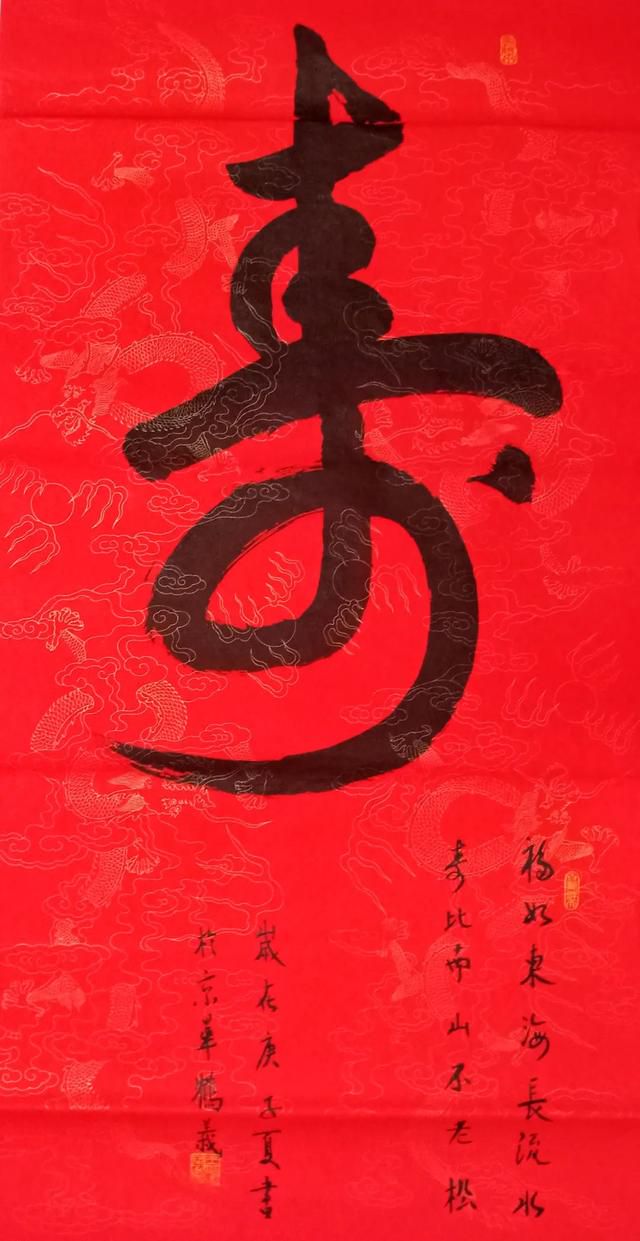 壽
福如東海長流水
壽比南山不老松
歲在庚子夏書
於京華鶴義